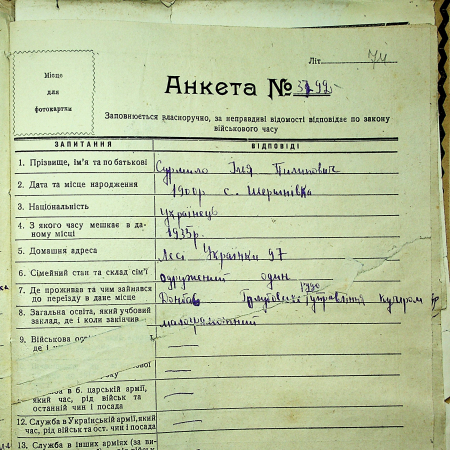 Літ. 74
Місце
для
фотокартки
Анкета № 3799
Заповнюється власноручно, за неправдиві відомості відповідає по закону
військового часу
ЗАПИТАННЯ ВІДПОВІДІ
1. Прізвище, ім'я та по батькові Сурмило Ілля Пилипович
2. Дата та місце народження 1900р с. Шершнівка
3. Національність Українець
4. З якого часу мешкає в да-
ному місці 1935р.
5. Домашня адреса Лесі Українки 97
6. Сімейний стан та склад сім'ї одружений один
7. Де проживав та чим займався
до переїзду в дане місце Донбас управління
8. Загальна освіта, який учбовий
заклад, де і коли закінчив малограмотний
9. Військова
де і
ової
року
в б. царській армії,
який час, рід військ та
останній чин і посада
12. Служба в Українській армії, який
час, рід військ та ост. чин і посада
13. Служба в інших арміях (за ви-